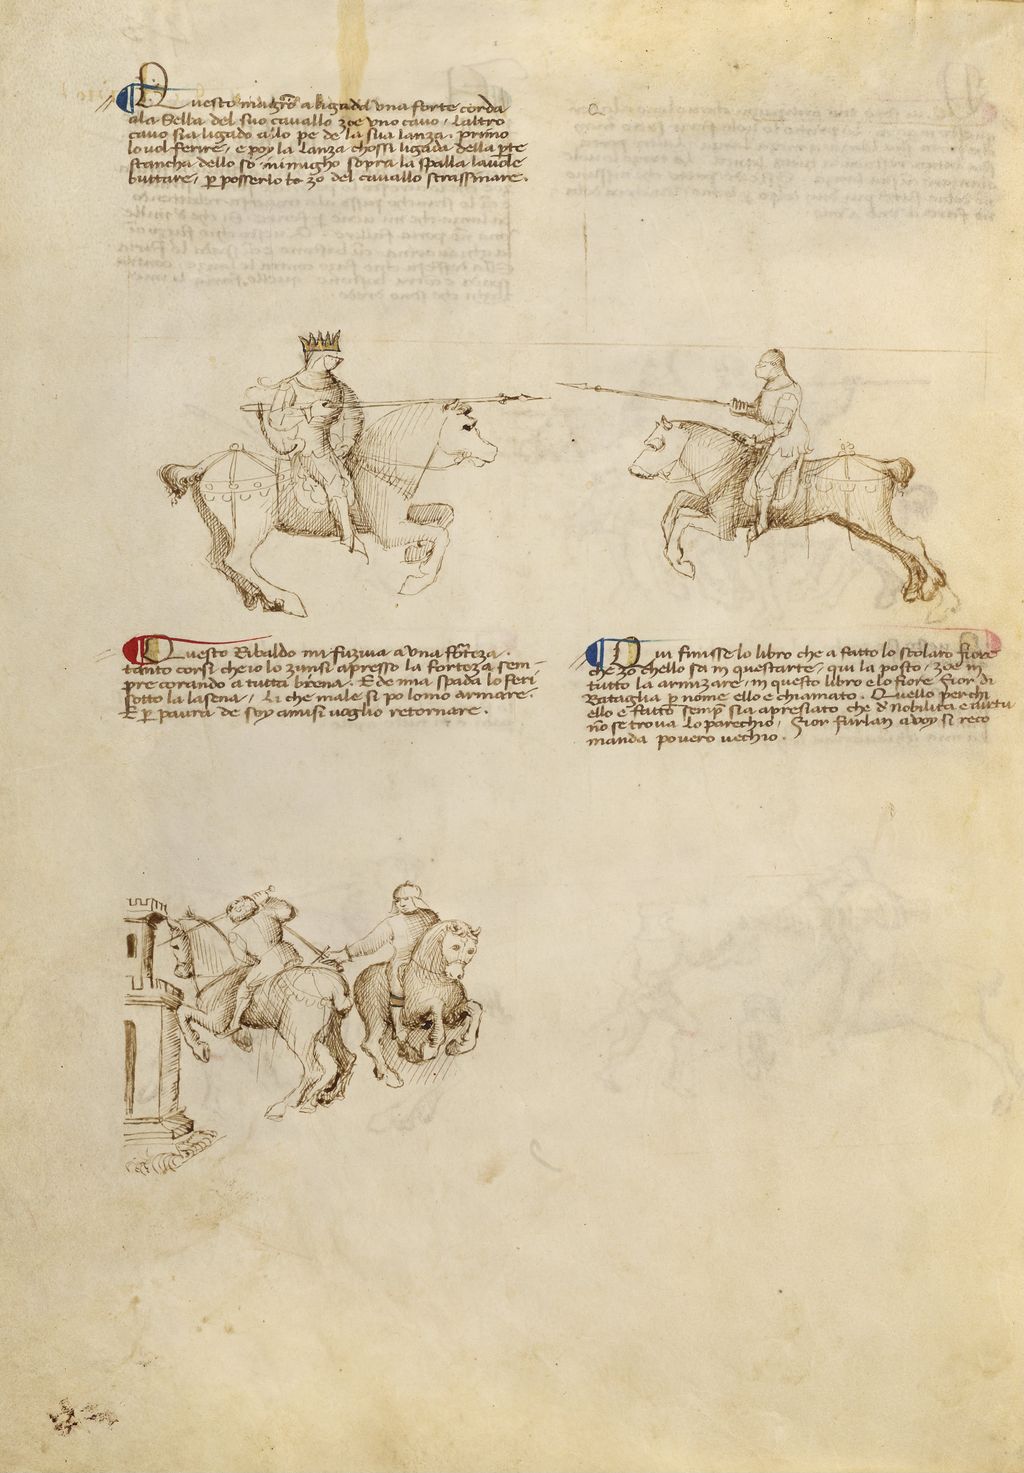 Questo magistro a ligada una forte corda
ala Sella del suo cavallo zoe uno cavo, laltro
cavo sia ligado a lo pe de la sua lanza. primo
lo vol ferire, e poy la lanza chossi ligada della pte
stancha dello so inimigho sopra la spalla la vole
buttare, p posserlo to zo del cavallo strassinare.
Questo Ribaldo mi fuziva a una forteza.
tanto corsi che io lo zunsi apresso la forteza sem-
pre corando a tutta brena. E de mia spada lo feri
sotto la lasena, Li che male si po lomo armare.
E p paura de soy amisi voglio retornare.
Qui finisse lo libro che a fatto lo scolaro fiore
che zo chello sa in questarte, qui la posto, zoe in
tutto la armizare, in questo libro e lo fiore. Fior di
Bataglia p nome ello e chiamato. Quello per chi
ello e fatto semp sia apresiato che d nobilita e virtu
no se trova lo parechio, Fior furlan a voy si reco
manda povero vechio.